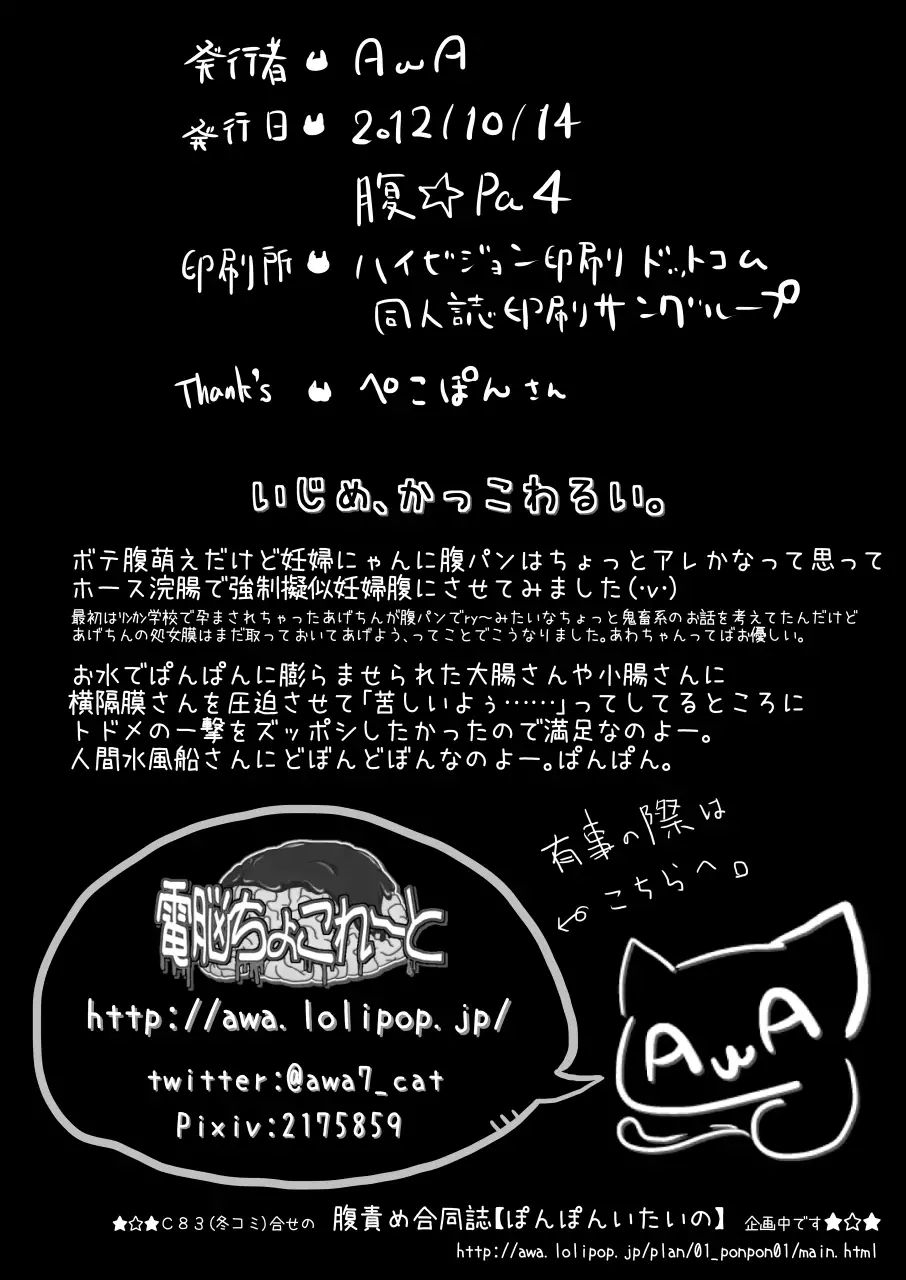 発行者 AωA
発行日 2012/10/14
腹☆Pa4
印刷所 ハイビジョン印刷ドットコム
同人誌印刷サングループ
Thank's ぺこぽんさん
いじめ、かっこわるい。
ボテ腹萌えだけど妊婦にゃんに腹パンはちょっとアレかなって思って
ホース浣腸で強制擬似妊婦腹にさせてみました(・v・)
最初はﾘﾝｶﾝ学校で孕まされちゃったあげちんが腹パンでry～みたいなちょっと鬼畜系のお話を考えてたんだけど
あげちんの処女膜はまだ取っておいてあげよう、ってことでこうなりました。あわちゃんってばお優しい。
お水でぱんぱんに膨らませられた大腸さんや小腸さんに
横隔膜さんを圧迫させて「苦しいよぅ……」ってしてるところに
トドメの一撃をズッポシしたかったので満足なのよー。
人間水風船さんにどぼんどぼんなのよー。ぱんぱん。
有事の際は
こちらへ。
電脳ちょこれーと
http://awa.lolipop.jp/
twitter:@awa7_cat
Pixiv:2175859
AωA
★☆★C83(冬コミ)合せの 腹責め合同誌【ぽんぽんいたいの】 企画中です★☆★
http://awa.lolipop.jp/plan/01_ponpon01/main.html